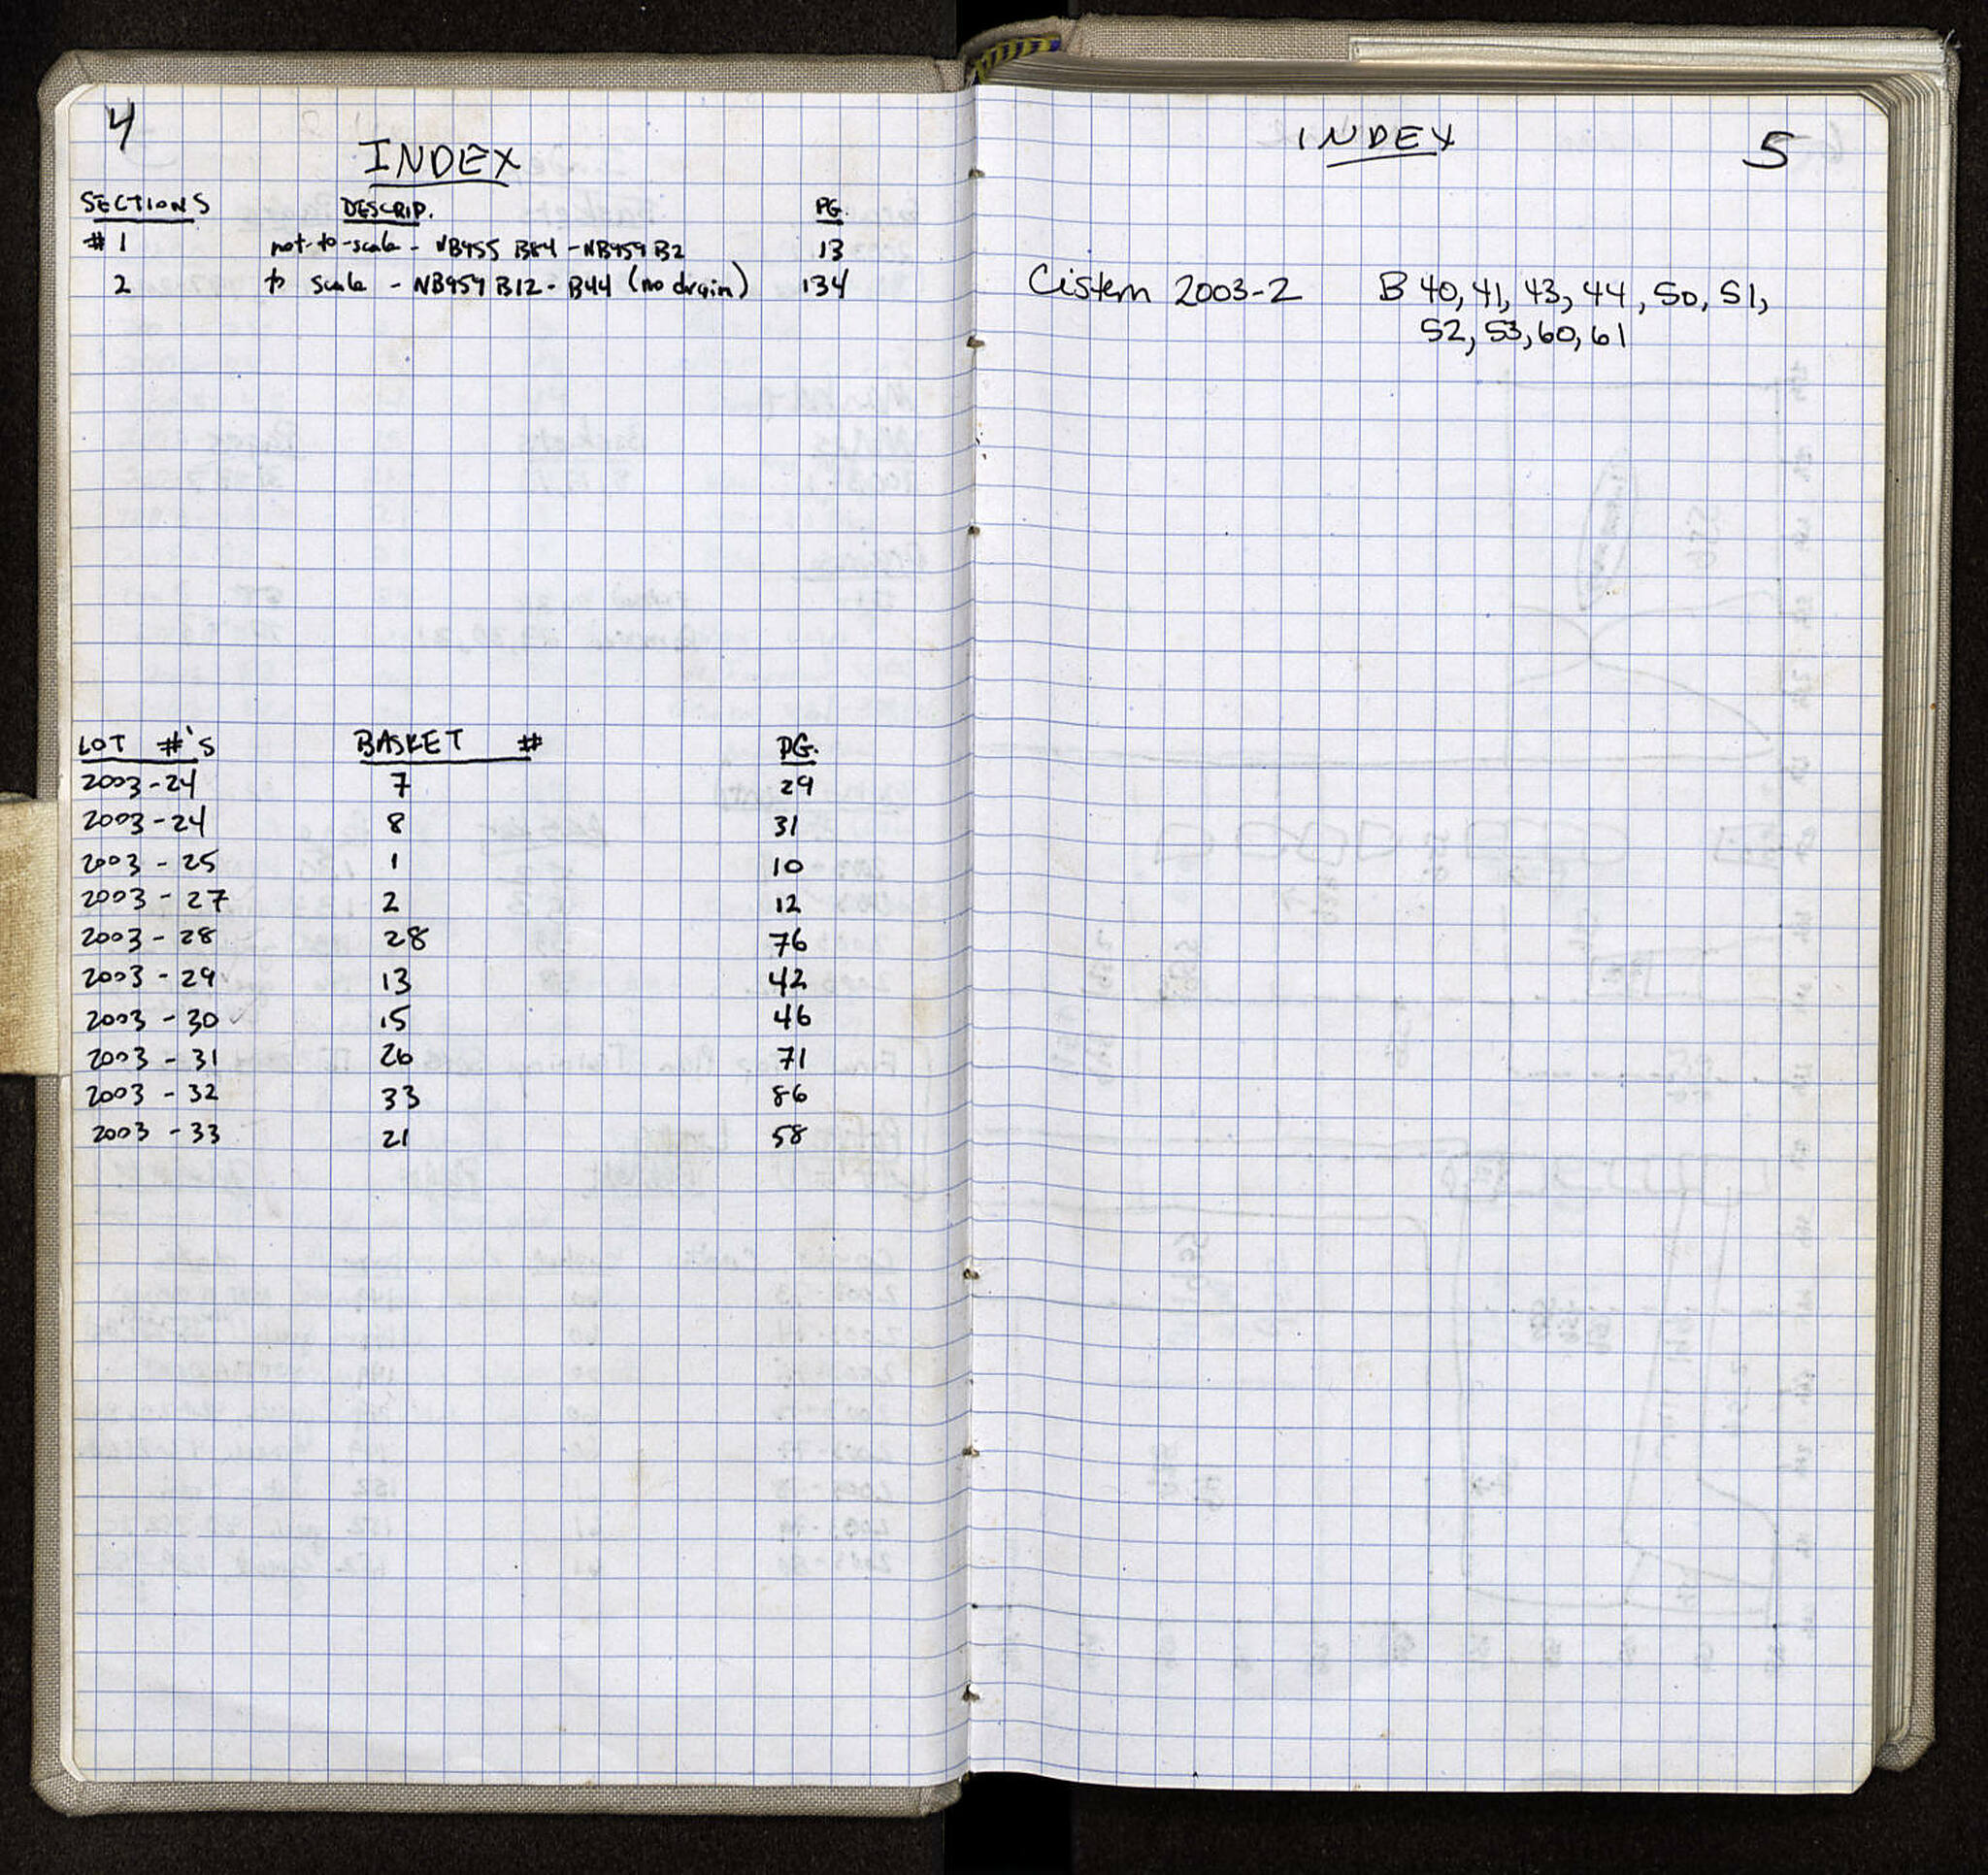 4
INDEX
SECTIONS DESCRIP. PG.
# 1 not-to-scale - NB955 B84 - NB959 B2 13
2 to scale - NB959 B12 - B44 (no drain) 134
LOT #'S BASKET # PG.
2003-24 7 29
2003-24 8 31
2003-25 1 10
2003-27 2 12
2003-28 28 76
2003-29 13 42
2003-30 15 46
2003-31 26 71
2003-32 33 86
2003-33 21 58
INDEX 5
Cistern 2003-2 B 40, 41, 43, 44, 50, 51,
52, 53, 60, 61